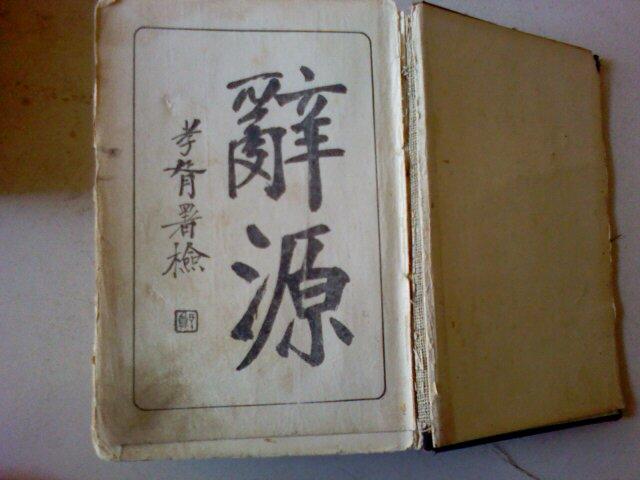 辭源
孝胥署檢